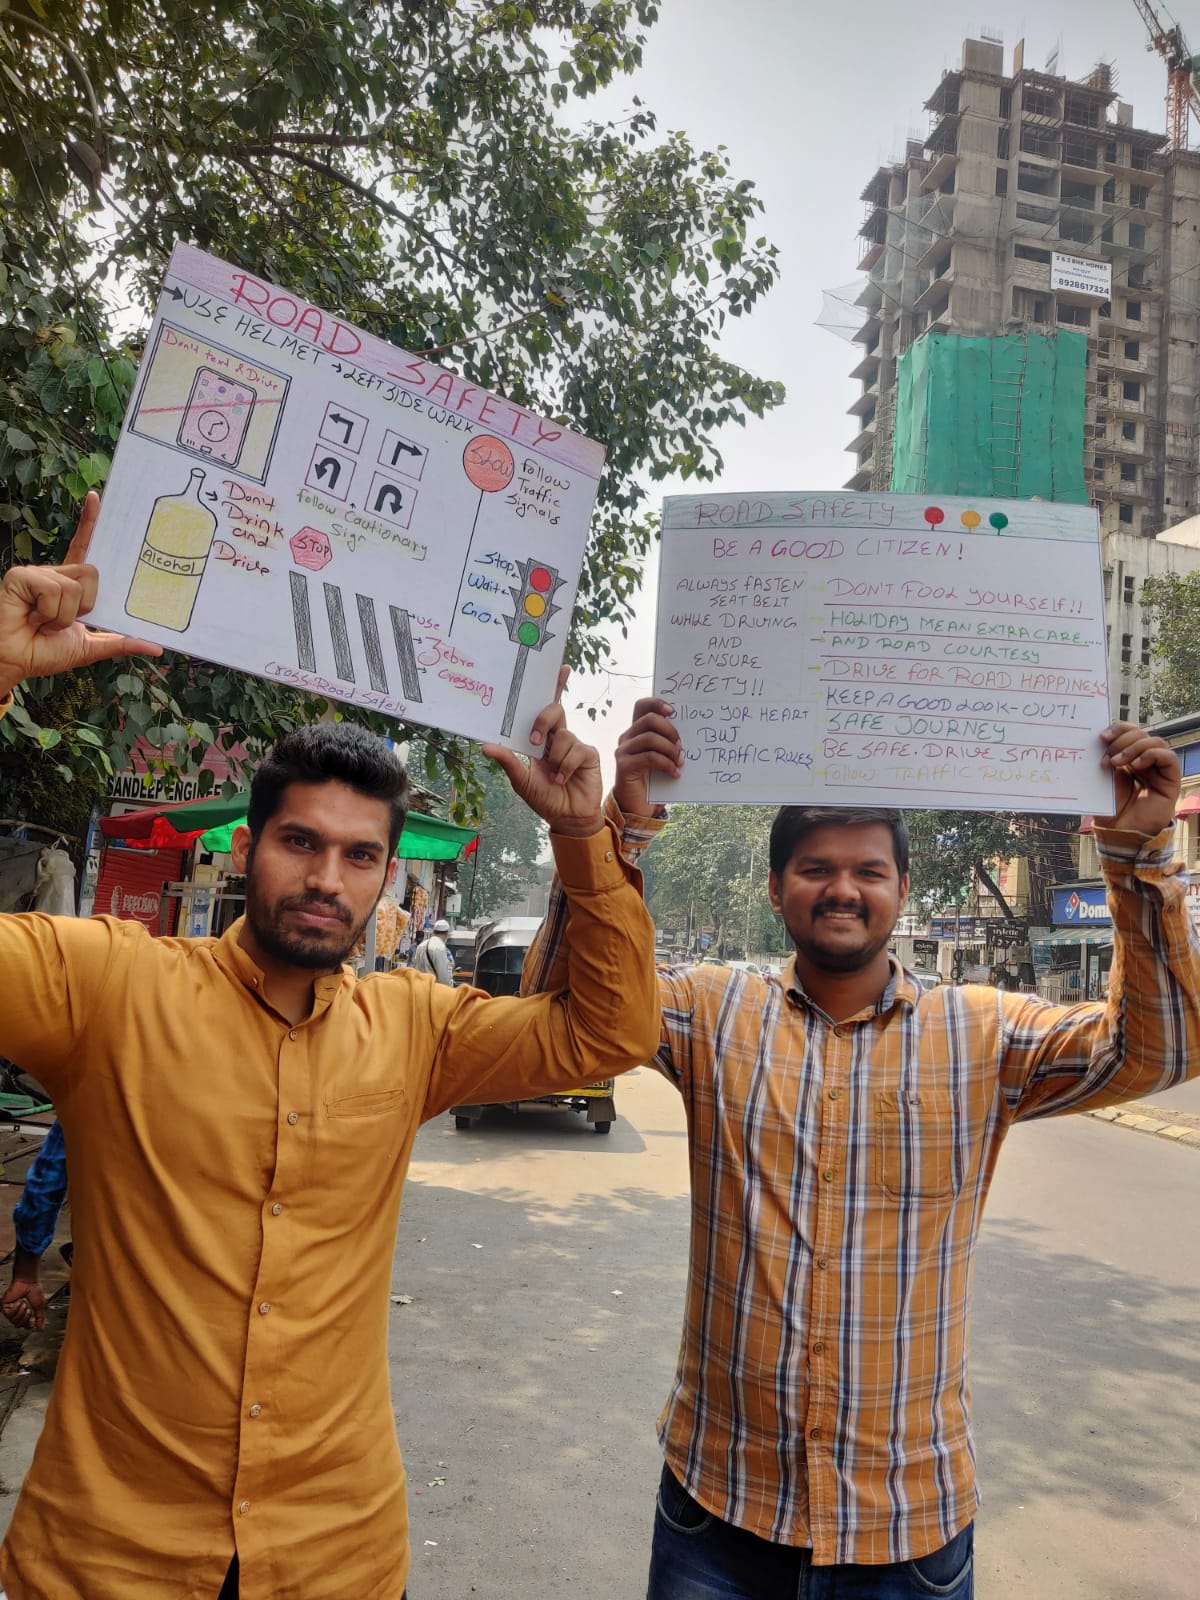 ROAD SAFETY
→USE HELMET →LEFT SIDE WALK
Don't text & Drive
SLOW
Follow
Traffic
Signals
Follow Cautionary
Sign
Don't
Drink
and
Drive
Alcohol
STOP
Stop
Wait
Go
Use
Zebra
crossing
Cross Road Safely
ROAD SAFETY
BE A GOOD CITIZEN!
ALWAYS FASTEN
SEAT BELT
WHILE DRIVING
AND
ENSURE
SAFETY!!
OLLOW YOR HEART
BUT
OW TRAFFIC RULES
TOO
DON'T FOOL YOURSELF!!
HOLIDAY MEAN EXTRA CARE....
AND ROAD COURTESY
DRIVE FOR ROAD HAPPINESS
KEEP A GOOD LOOK-OUT!
SAFE JOURNEY
BE SAFE. DRIVE SMART.
FOLLOW TRAFFIC RULES.
2 & 3 BHK HOMES
8928617324
SANDEEP ENGINEE
PRECISION
Domi
stylette